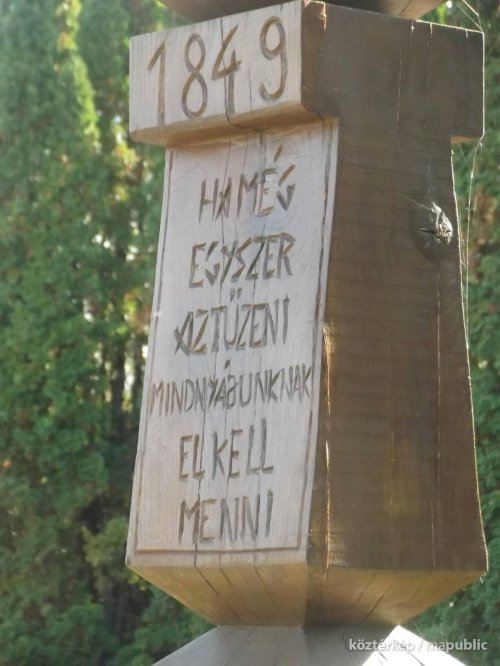 1849
HA MÉG
EGYSZER
AZTÜZENI
MINDNYÁJUNKNAK
EL KELL
MENNI
köztérkép / mapublic